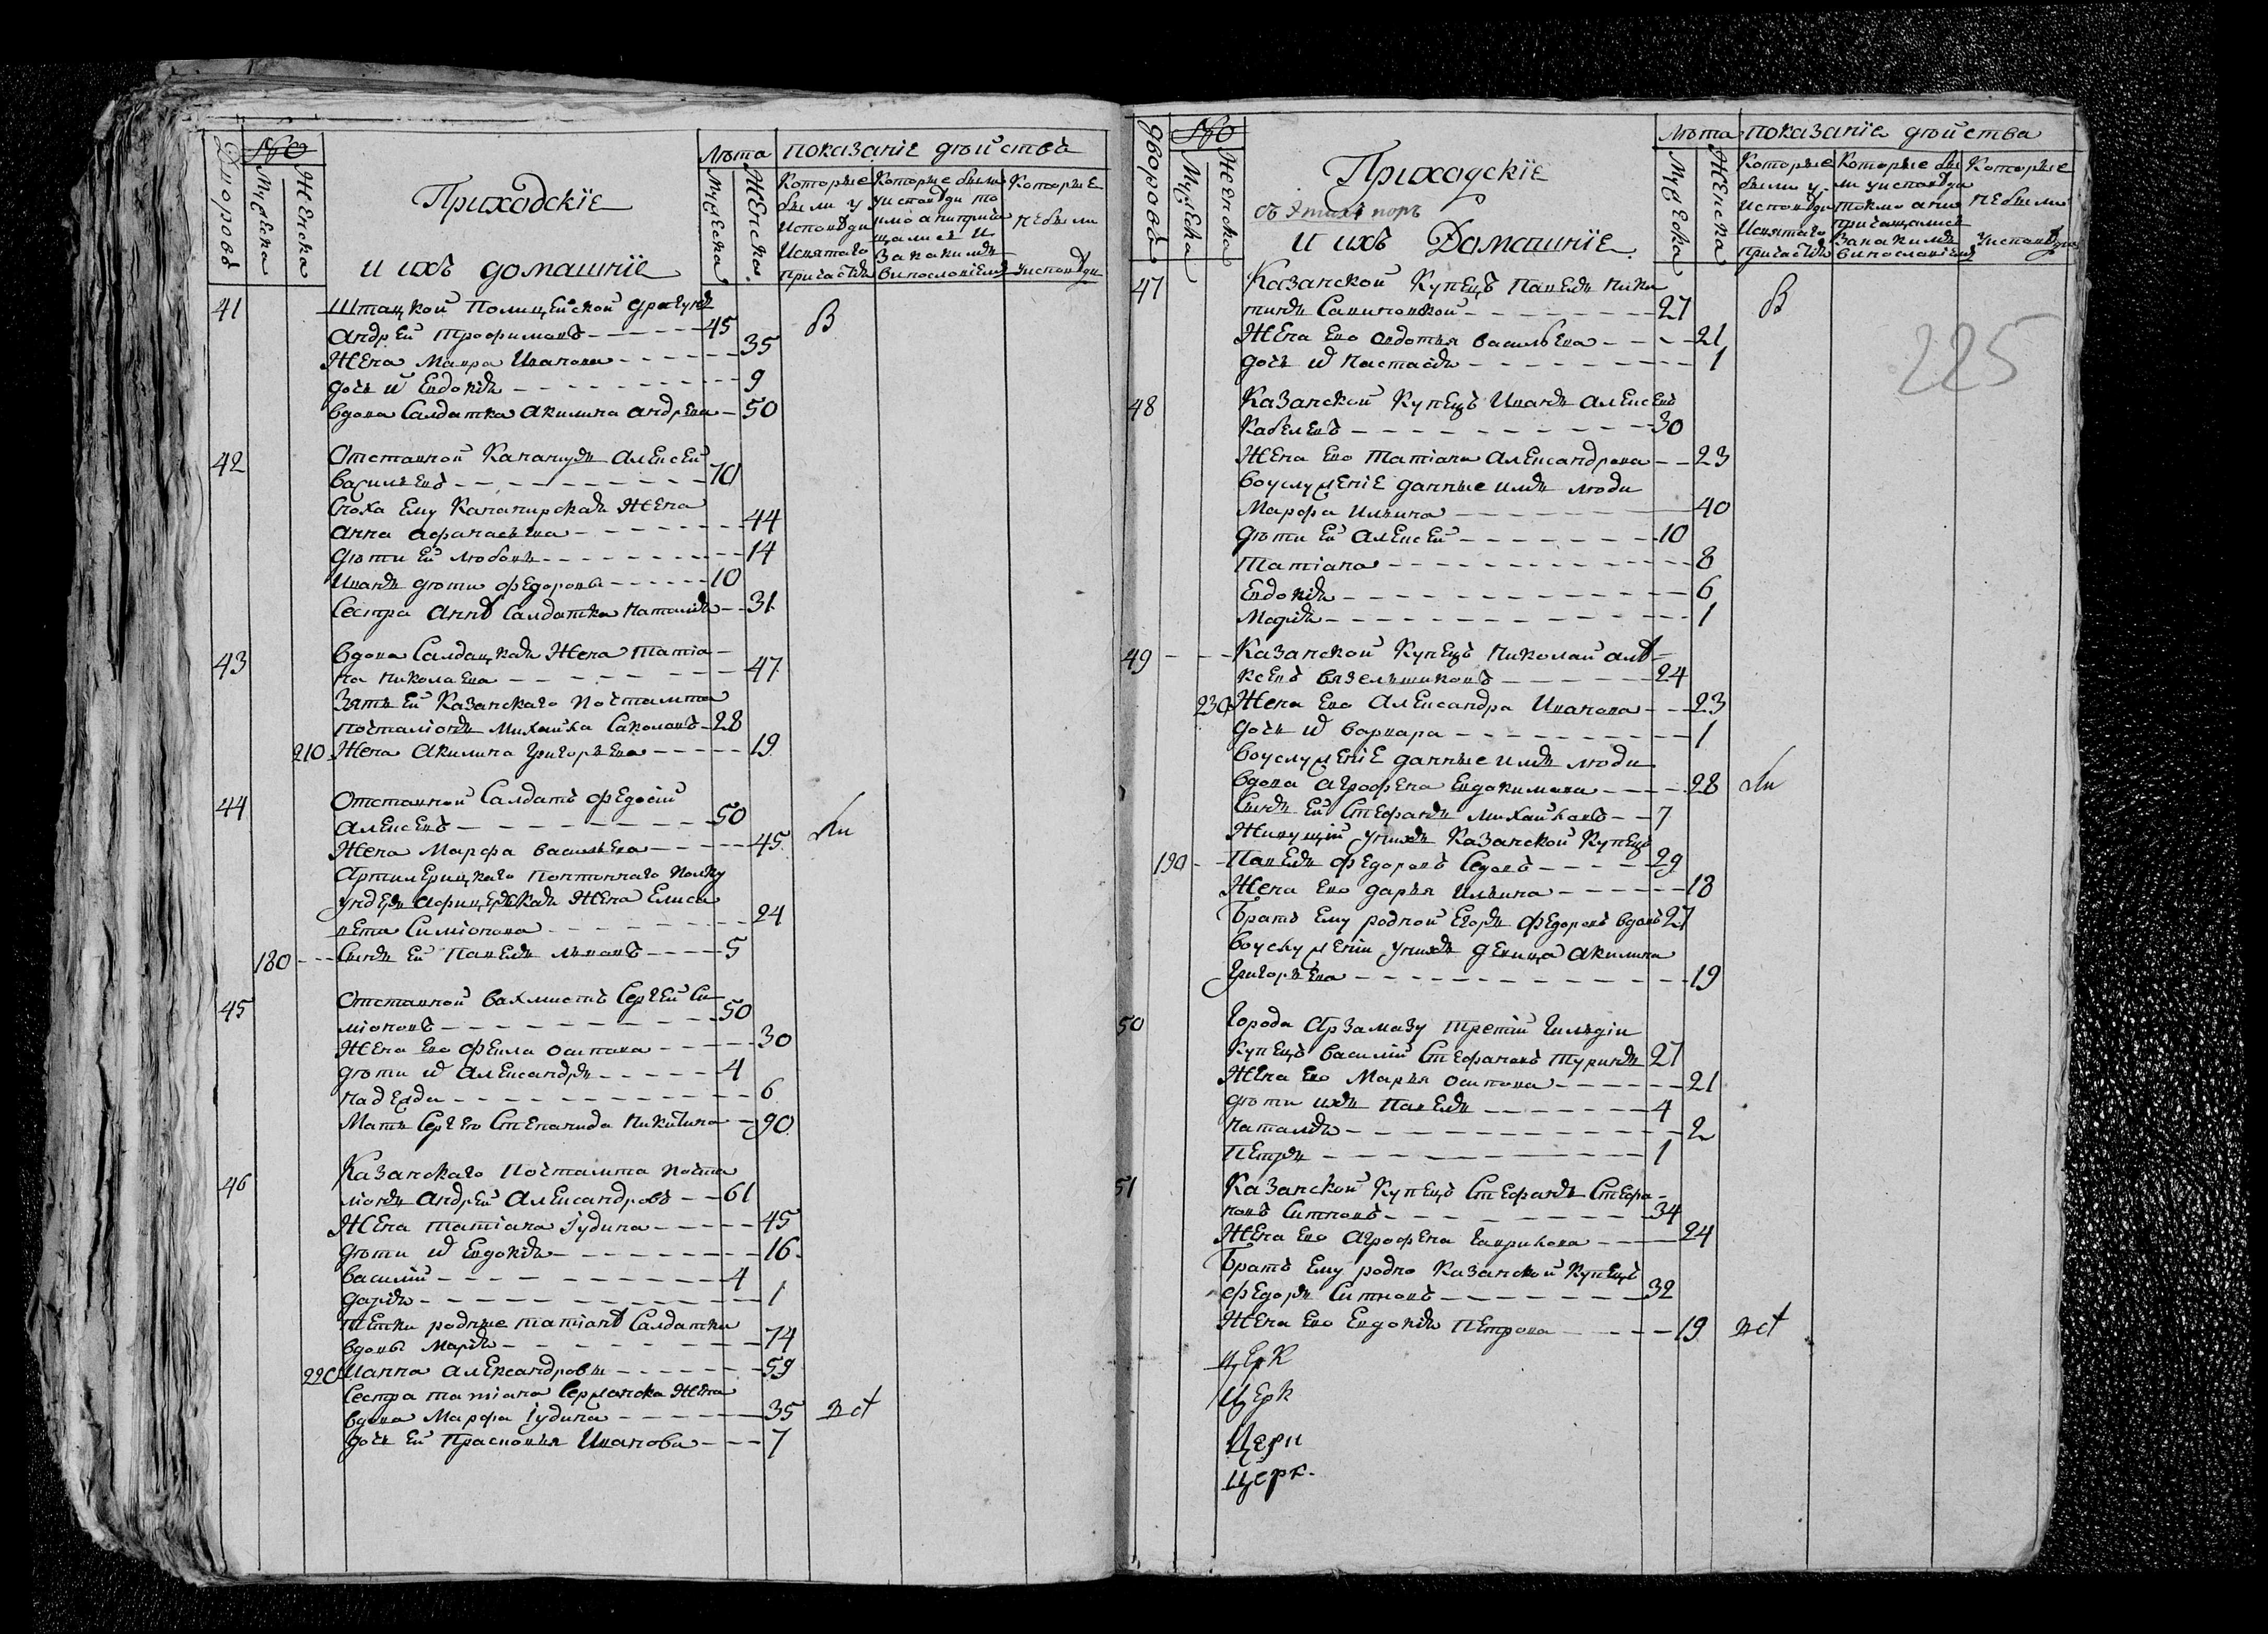 Дворовъ
No
Мужеска
Женска
Приходскїе
и ихъ домашнїе
Лѣта
Мужеска
Женска
показанїе дѣйства
Которые были у исповѣди и святаго причастїя
Которые были у исповѣди то кмо а не прича щались и за какимъ винословїемъ
Которые небыли у исповѣди
41 Штацкой Полицейской драгунъ
Андрей Трофимовъ 45 В
Жена Мавра Иванова 35
дочь и Евдокїя 9
вдова Салдатка Акилина Андрева 50
42 Отставной Алексей
Васильевъ 70
Сноха Ему Жена
Анна Афанасьева 44
дѣти Ей Любовь 14
Иванъ дѣти Федоровы 10
Сестра Аннѣ Салдатка Наталїя 31
43 вдова Салдацкая Жена Татїа
на Николаева 47
Зять Ей Казанскаго Почтамта
почталїонъ Михайла Саколовъ 28
210 Жена Акилина Григорьева 19
44 Отставной Салдатъ Федосїй
Алексевъ 50
Жена Марфа Васильева 45 ли
Артилерицкаго Понтоннаго Полку
ундеръ афицерская Жена Елиса
вета Симїонова 24
180 Сынъ Ей Павелъ Львовъ 5
45 Отставной Вахмистъ Сергей Си
мїоновъ 50
Жена Ево Фекла Осипова 30
дѣти и Александръ 4
Надежда 6
Мать Сергею Степанида Никитина 90
46 Казанскаго Почтамта почта
лїонъ Андрей Александровъ 61
Жена Татїана Іудина 45
дѣти и Евдокїя 16
Василїй 4
Дарїя 1
Тетки родные Татїанѣ Салдатки
вдовы Марїя 74
220 Ианна Александровы 59
Сестра Татїана Жена
вдова Марфа Іудина 35
дочь Ей Прасковья Иванова 7
Дворовъ
No
Мужеска
Женска
Приходскїе
съ этихъ поръ
и ихъ Домашнїе
Лѣта
Мужеска
Женска
показанїе дѣйства
Которые были у исповѣди и святаго причастїя
Которые бы ли у исповѣди токмо а не причащались за какимъ винословїемъ
Которые небыли у исповѣди
225
47 Казанской Купецъ Павелъ Ники
тинъ 27 В
Жена Ево Авдотья Васильева 21
дочь и Настасїя 1
48 Казанской Купецъ Иванъ Алексевъ
Кабелевъ 30
Жена Ево Татїана Александрова 23
воуслуженїе данные имъ люди
Марфа Ильина 40
дѣти Ей Алексей 10
Татїана 8
Евдокїя 6
Марїя 1
49 Казанской Купецъ Николай Алѣ
ксевъ 24
230 Жена Ево Александра Иванова 23
дочь и Варвара 1
воуслуженїе данные имъ люди
вдова Агрофена Евдокимова 28 ли
Сынъ Ей Стефанъ Михайловъ 7
Живущїй унихъ Казанской Купецъ
190 Павелъ Федоровъ Седовъ 29
Жена Ево Дарья Ильина 18
Братъ Ему родной Егоръ Федоровъ вдовъ 27
воуслуженїи унихъ девица Акилина
Григорьева 19
50 Города Арзамазу третїй гильдїи
Купецъ Василїй Стефановъ Туринъ 27
Жена Ево Марья Осипова 21
дѣти ихъ Павелъ 4
Наталїя 2
Петръ 1
51 Казанской Купецъ Стефанъ Стефа
новъ Ситновъ 34
Жена Ево Агрофена Гаврилова 24
Братъ Ему родно Казанской Купецъ
Федоръ Ситновъ 32
Жена Ево Евдокїя Петрова 19
церк
Церк
Церк
церк.